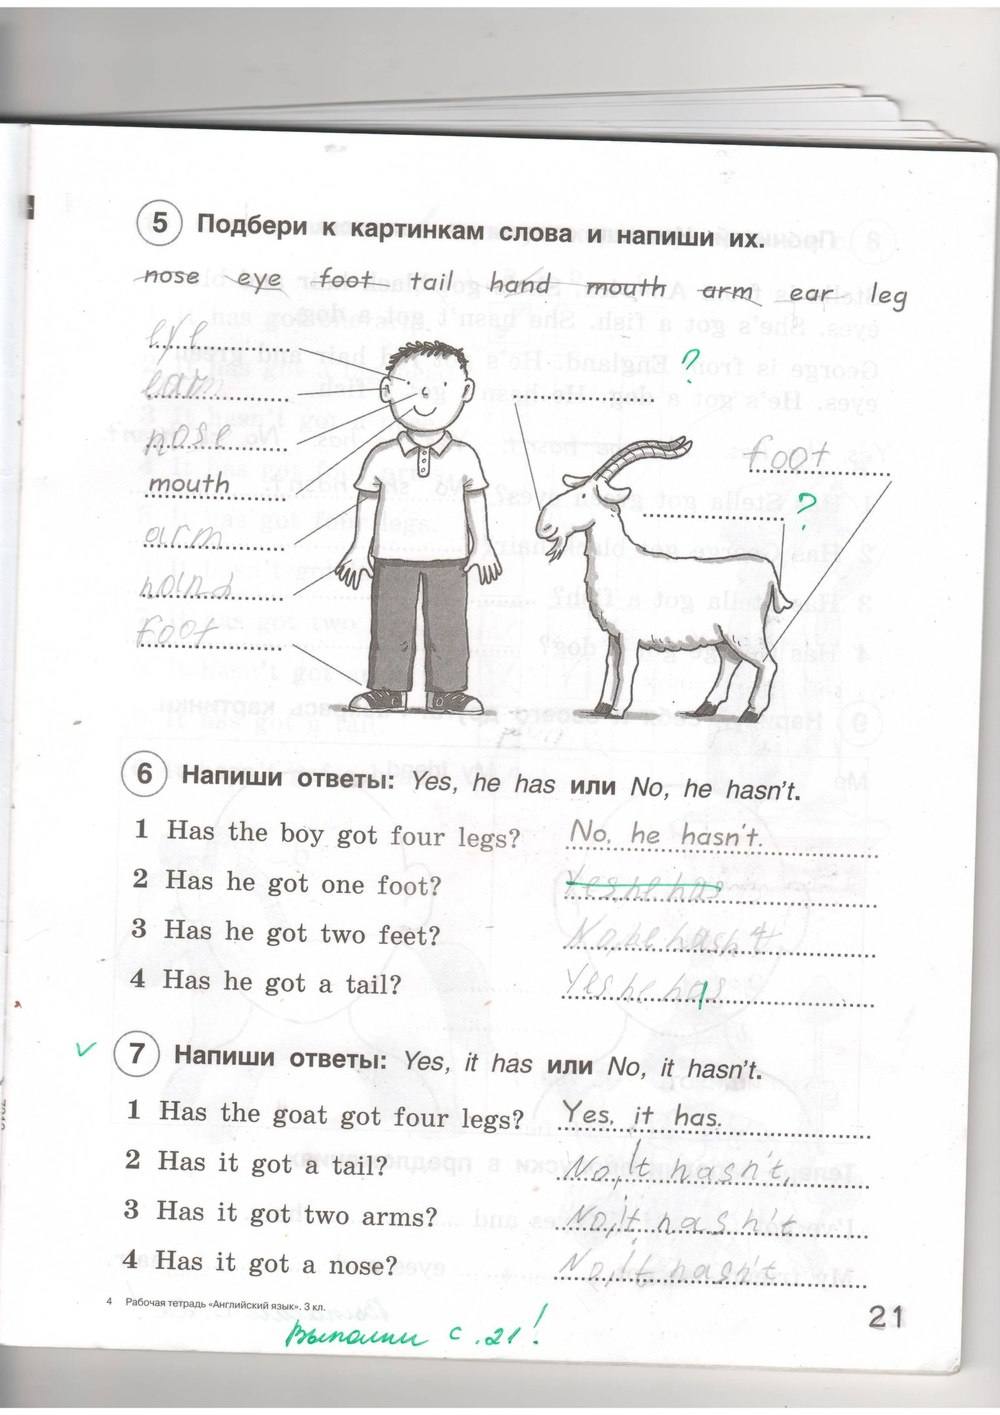 5 Подбери к картинкам слова и напиши их.
nose eye foot tail hand mouth arm ear leg
eye
?
nose
foot
mouth
?
arm
hand
foot
6 Напиши ответы: Yes, he has или No, he hasn't.
1 Has the boy got four legs? No, he hasn't.
2 Has he got one foot? Yes, he has
3 Has he got two feet? No, he hasn't
4 Has he got a tail? Yes he has
7 Напиши ответы: Yes, it has или No, it hasn't.
1 Has the goat got four legs? Yes, it has.
2 Has it got a tail? No, It hasn't,
3 Has it got two arms? No, it hash't
4 Has it got a nose? No, it hasn't
4 Рабочая тетрадь «Английский язык». 3 кл.
21
Выполни с. 21!